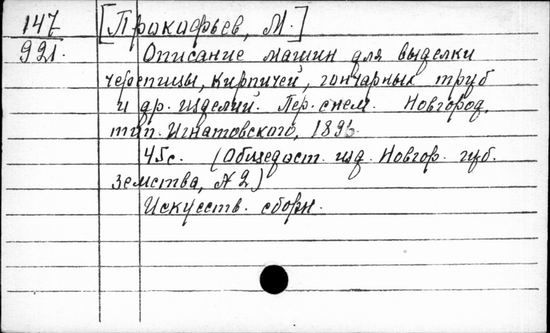 147
921.
[Прокофьев, М.]
Описание машин для выделки
черепицы, кирпичей, гончарных труб
и др. изделий. Пер. с нем. Новгород,
тип. Игнатовского,
45с. (Общедост. изд. Новгор. губ.
земства, №2)
Искусств. сборн.